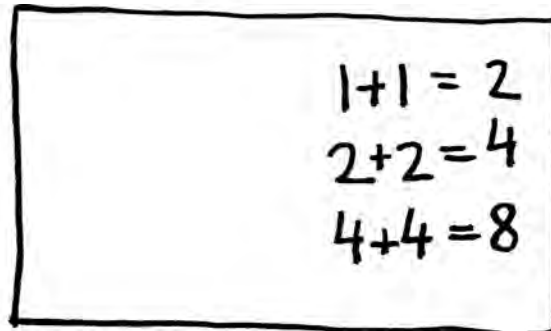 1+1 = 2
2+2=4
4+4=8